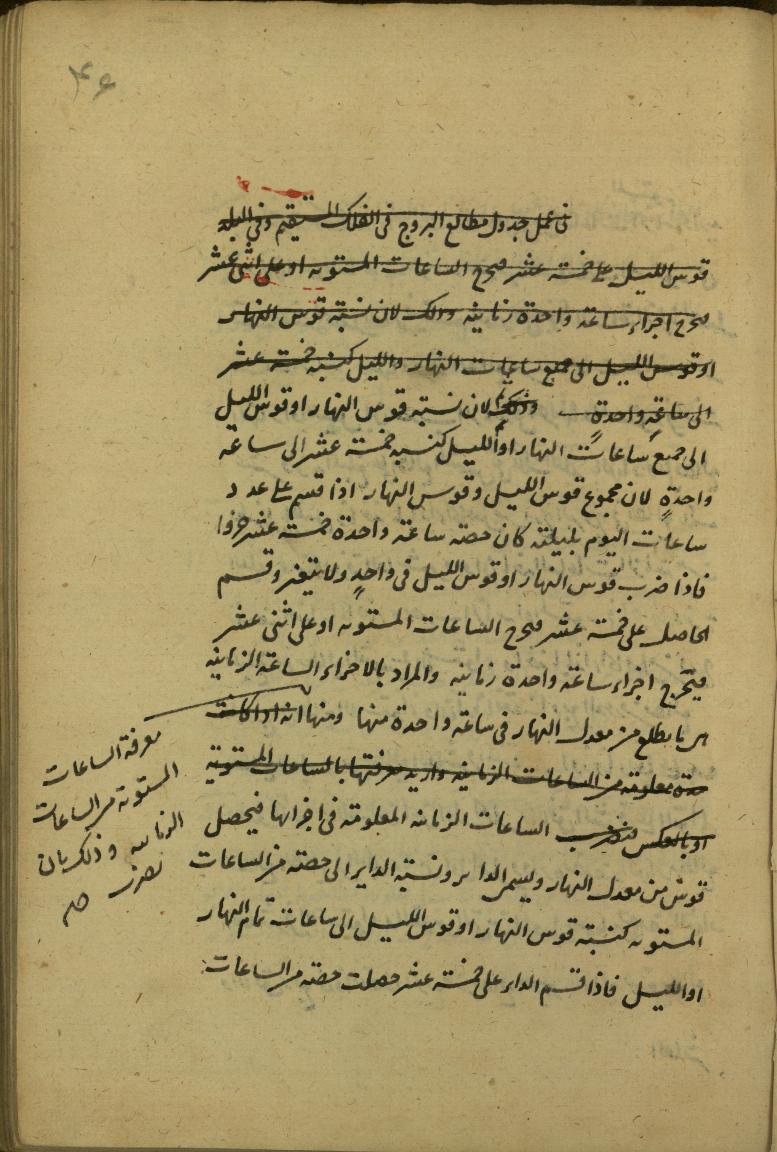 ۴۶
فى عمل جدول مطالع البروج فى الفلك المستقيم وفى البلد
قوس الليل على خمسة عشر صحح الساعات المستويه او على اثنى عشر
صحح اجزاء ساعة واحدة زمانيه وذلك لان نسبة قوس النهار
او قوس الليل الى جميع ساعات النهار والليل كنسبة خمسة عشر
الى ساعة واحدة وذلك لان نسبة قوس النهار او قوس الليل
الى جميع ساعات النهار او الليل كنسبة خمسة عشر الى ساعة
واحدة لان مجموع قوس الليل وقوس النهار اذا قسم على عدد
ساعات اليوم بليلته كان حصة ساعة واحدة خمسة عشر جزوا
فاذا ضرب قوس النهار او قوس الليل فى واحد ولا يتغير وقسم
الحاصل على خمسة عشر صحح الساعات المستويه او على اثنى عشر
فيخرج اجزاء ساعة واحدة زمانيه والمراد بالاجزاء الساعة الزمانيه
هى ما يطلع من معدل النهار فى ساعة واحدة منها ومنها انه اذا كانت
مدة معلومة من الساعات الزمانيه واريد معرفتها بالساعات المستوية
او بالعكس فتضرب الساعات الزمانيه المعلومة فى اجزائها فيحصل
قوس من معدل النهار ويسمى الداير ونسبة الداير الى حصته من الساعات
المستويه كنسبة قوس النهار او قوس الليل الى ساعات تمام النهار
او الليل فاذا قسم الداير على خمسة عشر حصلت حصته من الساعات
معرفة الساعات
المستويه من الساعات
الزمانيه وذلك بان
نضرب صح